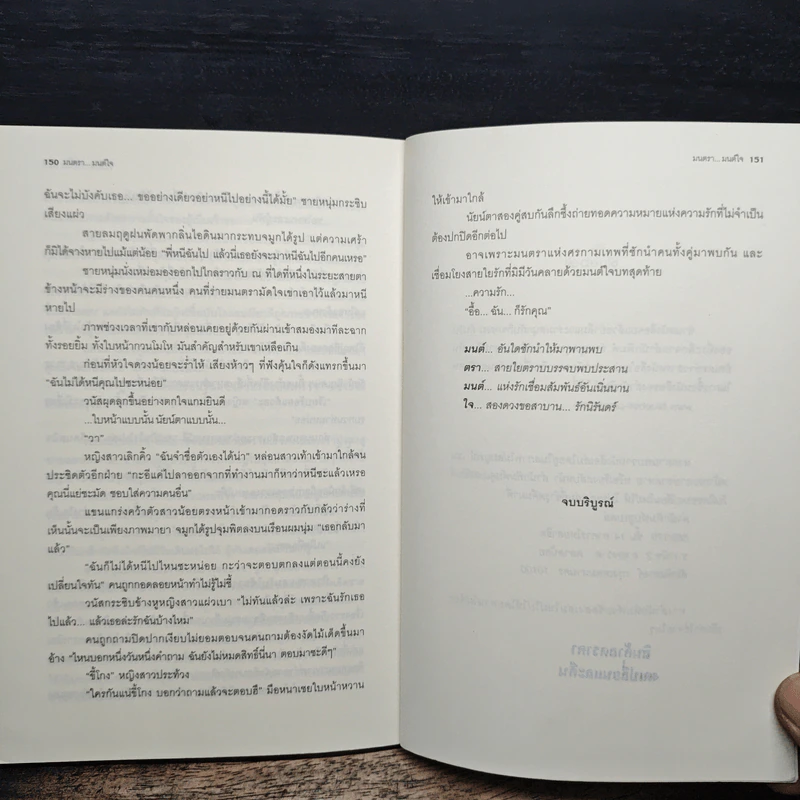 150 มนตรา... มนต์ใจ
ฉันจะไม่บังคับเธอ... ขออย่างเดียวอย่าหนีไปอย่างนี้ได้มั้ย” ชายหนุ่มกระซิบ
เสียงแผ่ว
สายลมฤดูฝนพัดพากลิ่นไอดินมากระทบจมูกได้รูป แต่ความเศร้า
ก็มิได้จางหายไปแม้แต่น้อย “พี่หนีฉันไป แล้วนี่เธอยังจะมาหนีฉันไปอีกคนเหรอ”
ชายหนุ่มนั่งเหม่อมองออกไปไกลราวกับ ณ ที่ใดที่หนึ่งในระยะสายตา
ข้างหน้าจะมีร่างของคนคนหนึ่ง คนที่ร่ายมนตรามัดใจเขาเอาไว้แล้วมาหนี
หายไป
ภาพช่วงเวลาที่เขากับหล่อนเคยอยู่ด้วยกันผ่านเข้าสมองมาทีละฉาก
ทั้งรอยยิ้ม ทั้งใบหน้ากวนโมโห มันสำคัญสำหรับเขาเหลือเกิน
ก่อนที่หัวใจดวงน้อยจะร่ำไห้ เสียงห้าวๆ ที่ฟังคุ้นใจก็ดังแทรกขึ้นมา
“ฉันไม่ได้หนีคุณไปซะหน่อย”
วนัสผุดลุกขึ้นอย่างตกใจแกมยินดี
...ใบหน้าแบบนั้น นัยน์ตาแบบนั้น...
“วา”
หญิงสาวเลิกคิ้ว “ฉันจำชื่อตัวเองได้น่า” หล่อนสาวเท้าเข้ามาใกล้จน
ประชิดตัวอีกฝ่าย “กะอีแค่ไปลาออกจากที่ทำงานมาก็หาว่าหนีซะแล้วเหรอ
คุณนี่แย่ชะมัด ชอบใส่ความคนอื่น”
แขนแกร่งคว้าตัวสาวน้อยตรงหน้าเข้ามากอดราวกับกลัวว่าร่างที่
เห็นนั้นจะเป็นเพียงภาพมายา จมูกได้รูปจุมพิตลงบนเรือนผมนุ่ม “เธอกลับมา
แล้ว”
“ฉันก็ไม่ได้หนีไปไหนซะหน่อย กะว่าจะตอบตกลงแต่ตอนนี้คงยัง
เปลี่ยนใจทัน” คนถูกกอดลอยหน้าทำไม่รู้ไม่ชี้
วนัสกระซิบข้างหูหญิงสาวแผ่วเบา “ไม่ทันแล้วล่ะ เพราะฉันรักเธอ
ไปแล้ว... แล้วเธอล่ะรักฉันบ้างไหม”
คนถูกถามปิดปากเงียบไม่ยอมตอบจนคนถามต้องงัดไม้เด็ดขึ้นมา
อ้าง “ไหนบอกหนึ่งวันหนึ่งคำถาม ฉันยังไม่หมดสิทธิ์นี่นา ตอบมาซะดีๆ”
“ขี้โกง” หญิงสาวประท้วง
“ใครกันแน่ขี้โกง บอกว่าถามแล้วจะตอบฮึ” มือหนาเชยใบหน้าหวาน
มนตรา... มนต์ใจ 151
ให้เข้ามาใกล้
นัยน์ตาสองคู่สบกันลึกซึ้งถ่ายทอดความหมายแห่งความรักที่ไม่จำเป็น
ต้องปกปิดอีกต่อไป
อาจเพราะมนตราแห่งศรกามเทพที่ชักนำคนทั้งคู่มาพบกัน และ
เชื่อมโยงสายใยรักที่มิมีวันคลายด้วยมนต์ใจบทสุดท้าย
...ความรัก...
“อื้อ... ฉัน... ก็รักคุณ”
มนต์... อันใดชักนำให้มาพานพบ
ตรา... สายใยตราบบรรจบพบประสาน
มนต์... แห่งรักเชื่อมสัมพันธ์อันเนิ่นนาน
ใจ... สองดวงขอสาบาน... รักนิรันดร์
จบบริบูรณ์